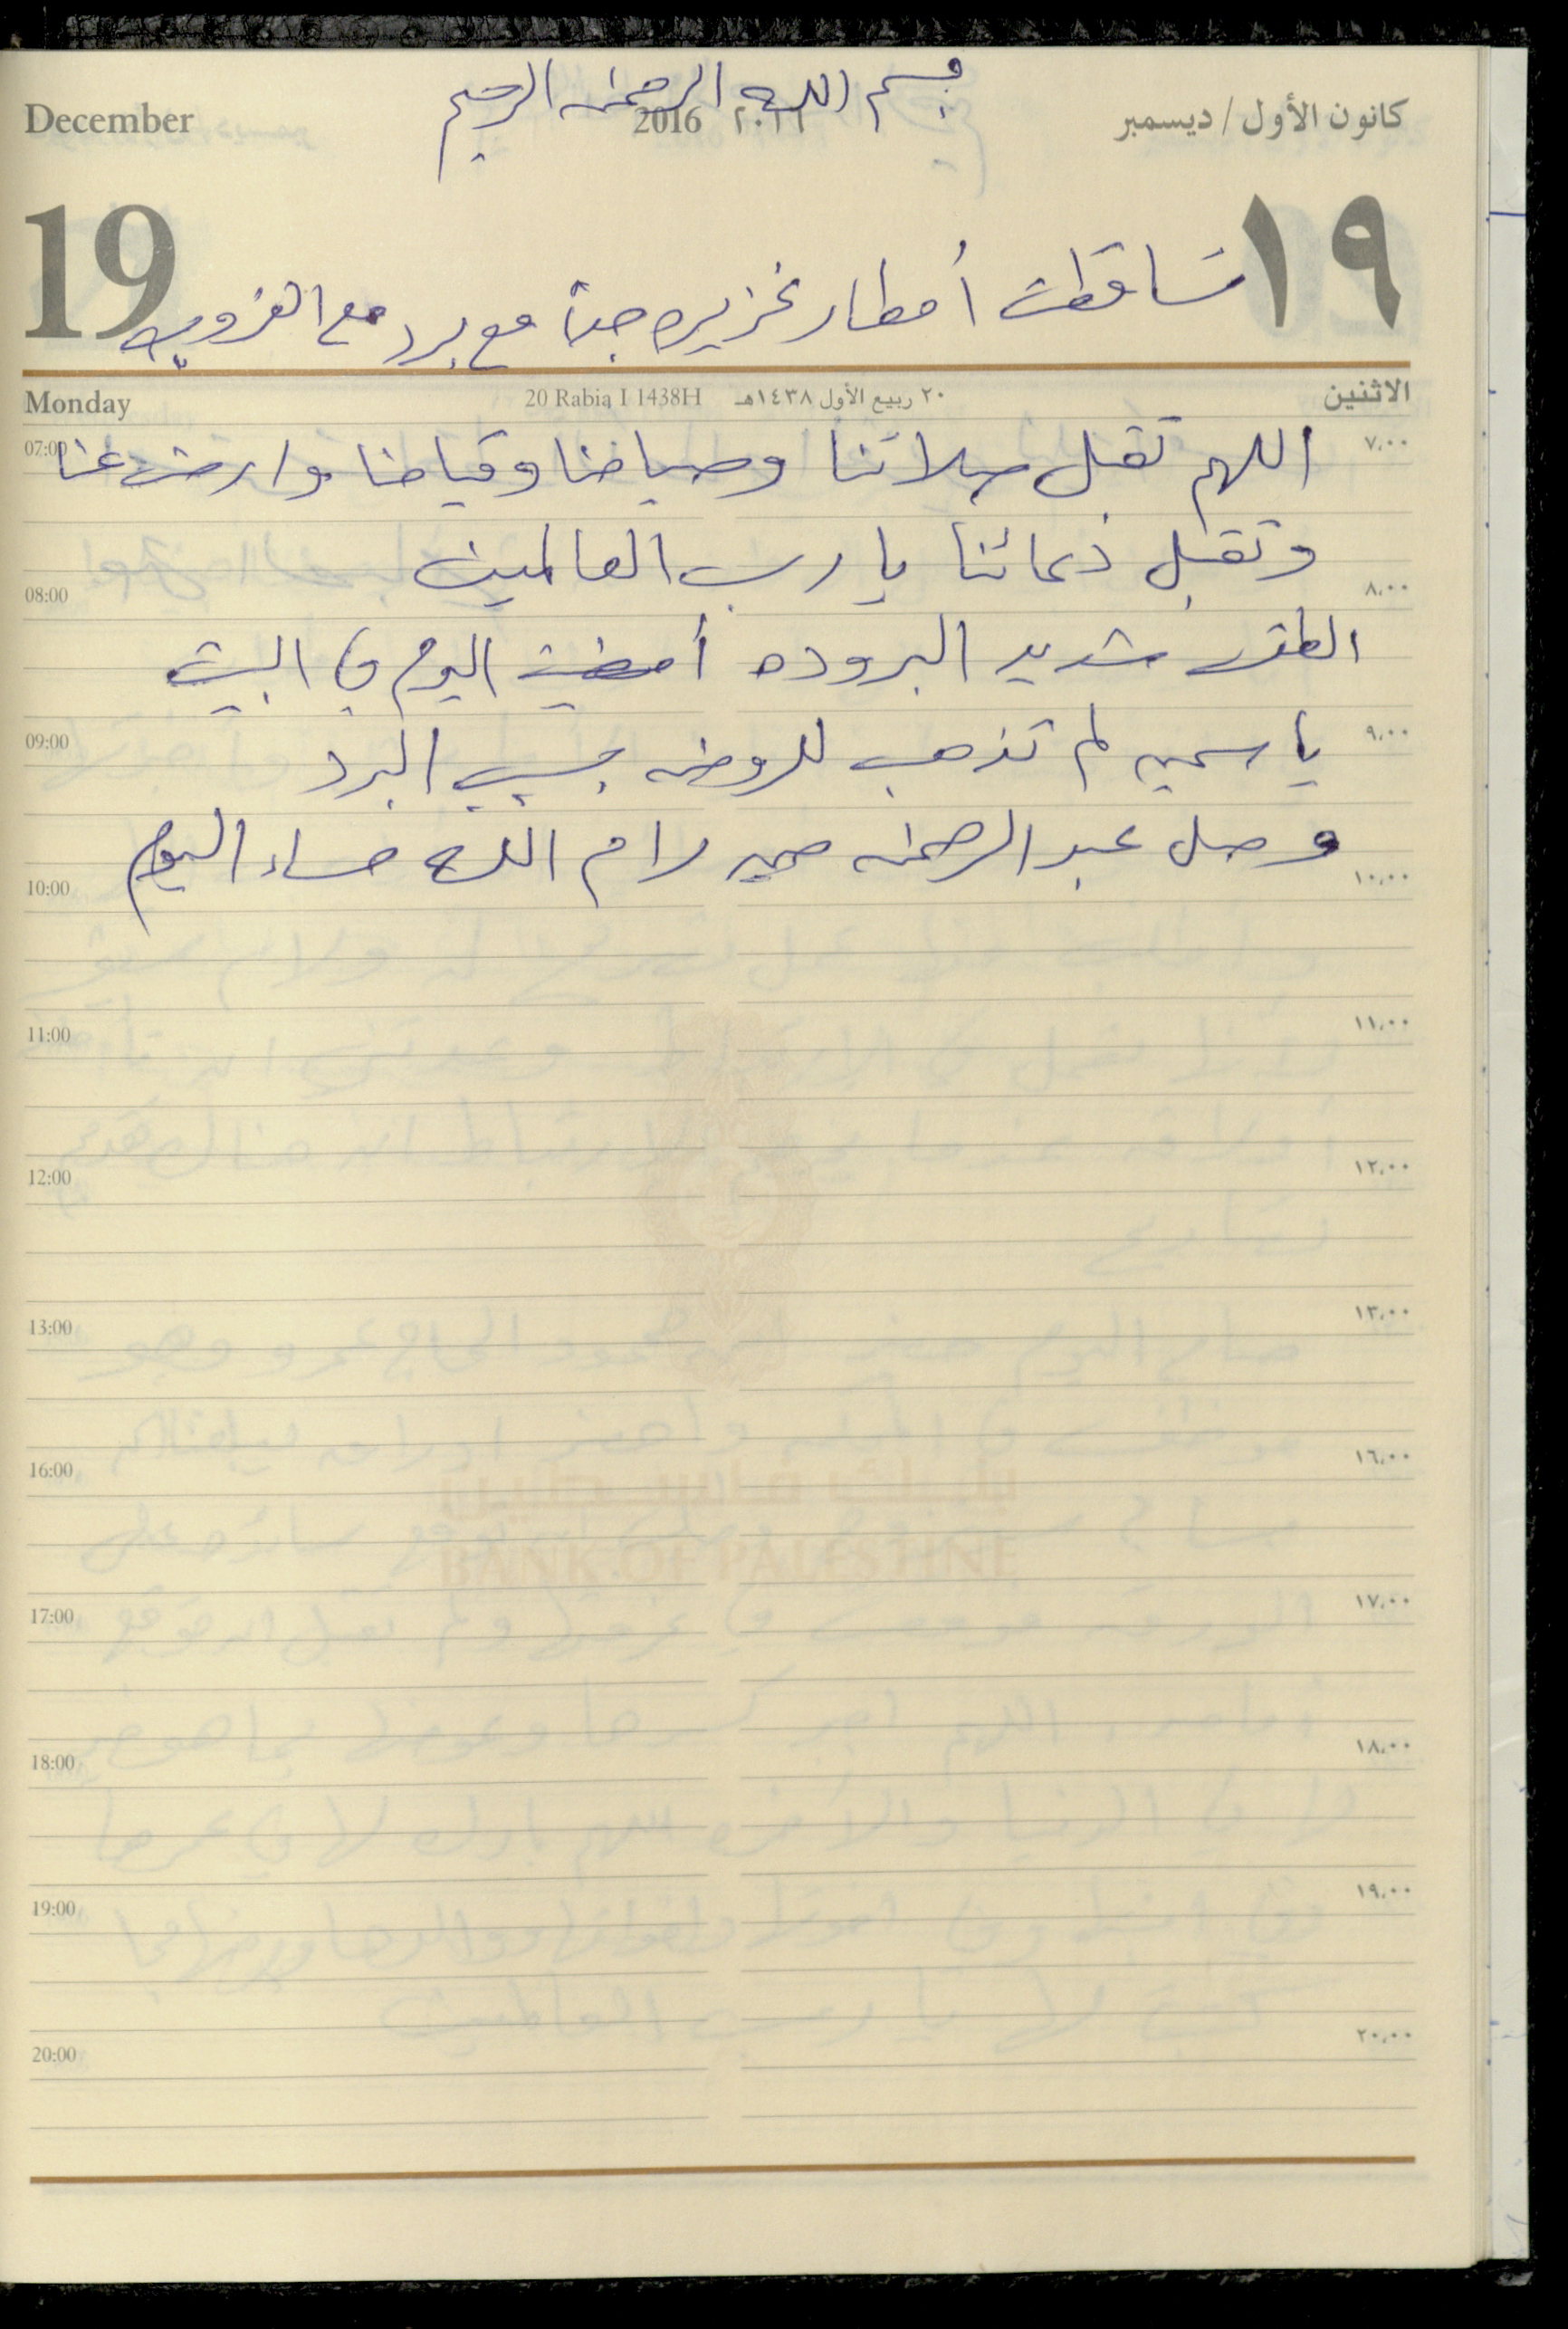 بسم الله الرحمن الرحيم
December 2016 ٢٠١٦ كانون الأول / ديسمبر
19 ١٩
تساقطت أمطار غزيره جداً مع برد مع الغروب
Monday 20 Rabia I 1438H ٢٠ ربيع الأول ١٤٣٨هـ الاثنين
07:00 ٧,٠٠
اللهم تقبل صلاتنا وصيامنا وقيامنا وارض عنا
وتقبل دعائنا يا رب العالمين
08:00 ٨,٠٠
الطقس شديد البروده أمضيت اليوم في البيت
09:00 ٩,٠٠
ياسمين لم تذهب للروضه بسبب البرد
وصل عبد الرحمن من رام الله مساء اليوم
10:00 ١٠,٠٠
11:00 ١١,٠٠
12:00 ١٢,٠٠
13:00 ١٣,٠٠
16:00 ١٦,٠٠
بنك فلسطين
BANK OF PALESTINE
17:00 ١٧,٠٠
18:00 ١٨,٠٠
19:00 ١٩,٠٠
20:00 ٢٠,٠٠